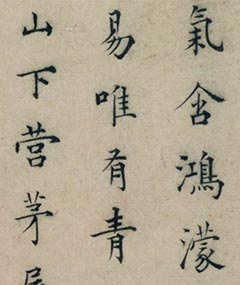 氣含鴻濛
易唯有青
山下营茅